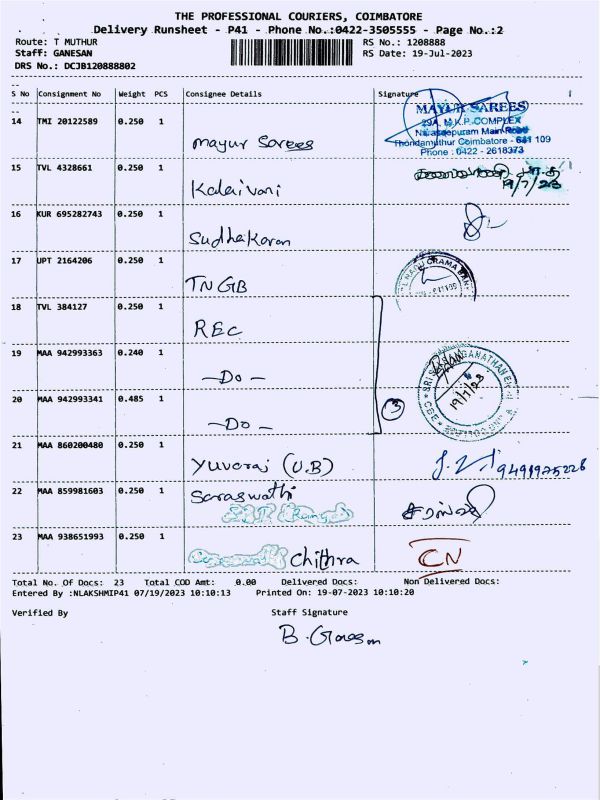 THE PROFESSIONAL COURIERS, COIMBATORE
Delivery Runsheet - P41 - Phone No.:0422-3505555 - Page No.:2
Route: T MUTHUR RS No.: 1208888
Staff: GANESAN RS Date: 19-Jul-2023
DRS No.: DCJB120888802
S No Consignment No Weight PCS Consignee Details Signature
14 TMI 20122589 0.250 1 Mayur Sarees
MAYUR SAREES
29A, M.K.P. COMPLEX
Naraseepuram Main Road
Thondamuthur Coimbatore - 641 109
Phone : 0422 - 2618373
15 TVL 4328661 0.250 1 Kalaivani 19/7/23
16 KUR 695282743 0.250 1 Sudhakaran
17 UPT 2164206 0.250 1 TNGB
18 TVL 384127 0.250 1 REC
19 MAA 942993363 0.240 1 -Do-
19/7/23
20 MAA 942993341 0.485 1 -Do- 3
21 MAA 860200480 0.250 1 Yuvaraj (U.B) 9499975226
22 MAA 859981603 0.250 1 Saraswathi
23 MAA 938651993 0.250 1 Chithra CN
Total No. Of Docs: 23 Total COD Amt: 0.00 Delivered Docs: Non Delivered Docs:
Entered By :NLAKSHMIP41 07/19/2023 10:10:13 Printed On: 19-07-2023 10:10:20
Verified By Staff Signature